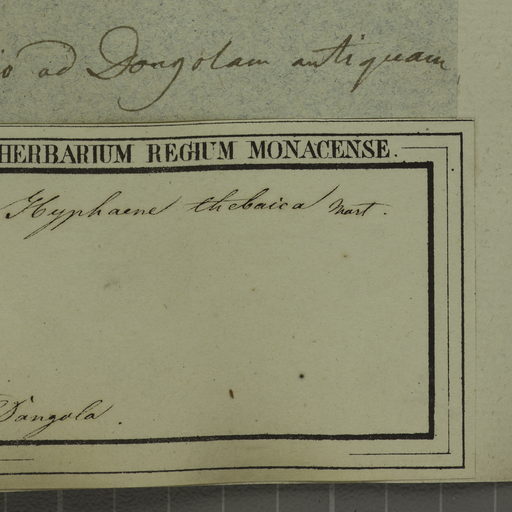 ad Dongolam antiquam
HERBARIUM REGIUM MONACENSE.
Hyphaene thebaica Mart.
Dongola.